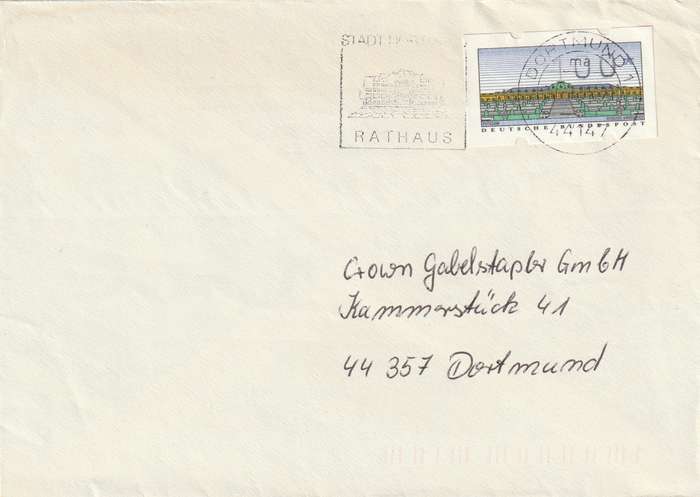 STADT DORTMUND
RATHAUS
DORTMUND 1
44147
DEUTSCHE BUNDESPOST
Crown Gabelstapler GmbH
Kammerstück 41
44 357 Dortmund